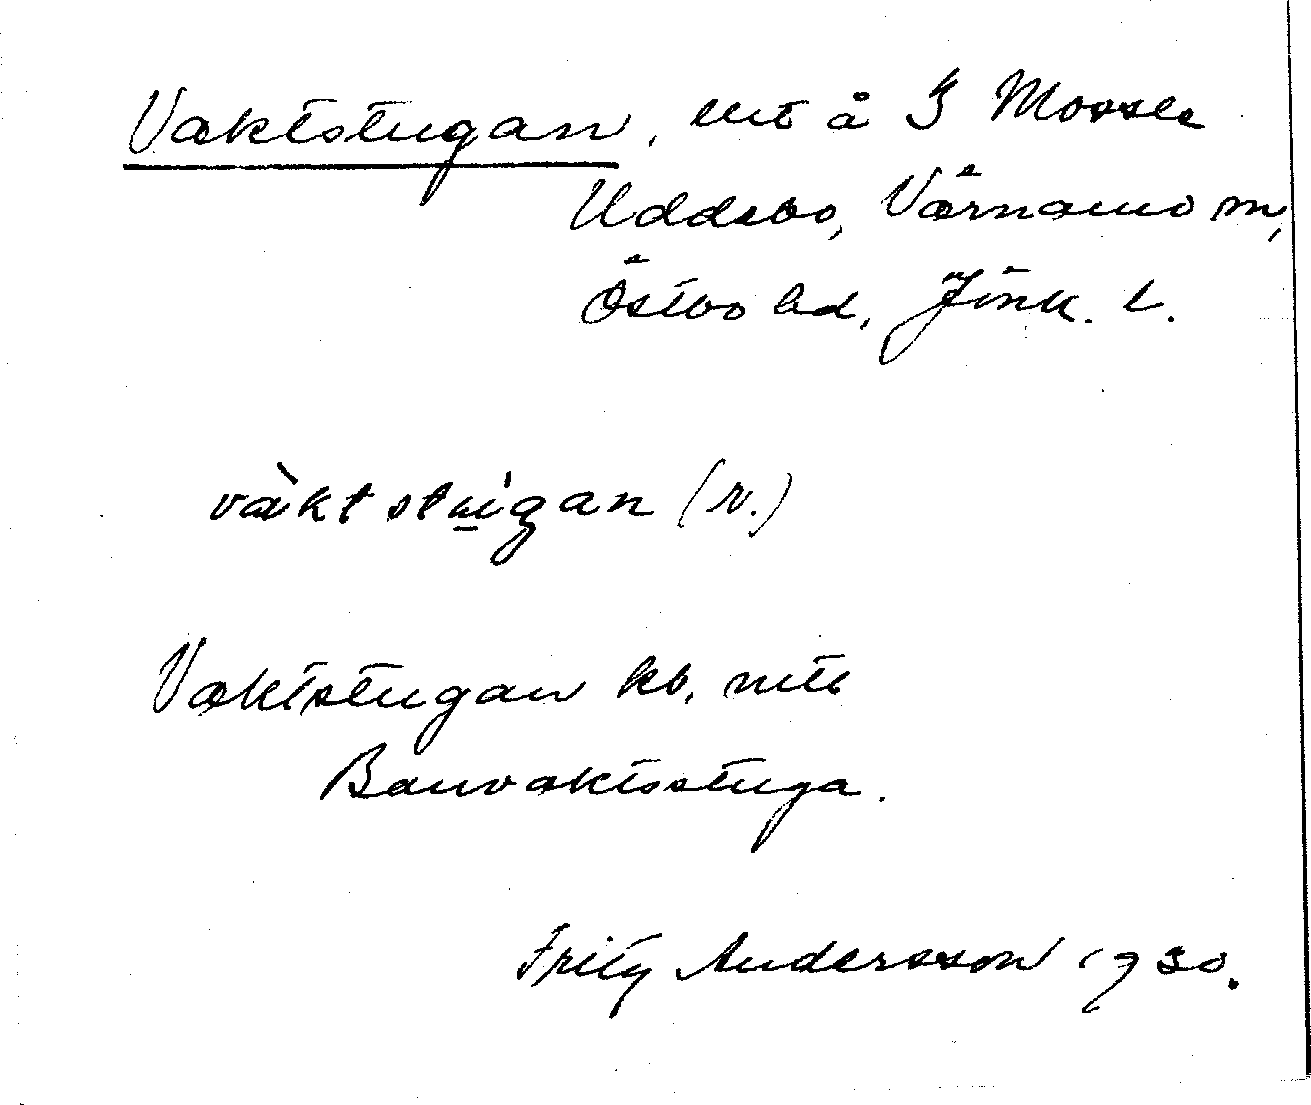 Vaktstugan, lht å I Mossle
Uddebo, Värnamo sn,
Östbo hd, Jönk. l.
vàktstu̠i̍gan (r.)
Vaktstugan kb. mtb
Banvaktsstuga.
Fritz Andersson 1930.